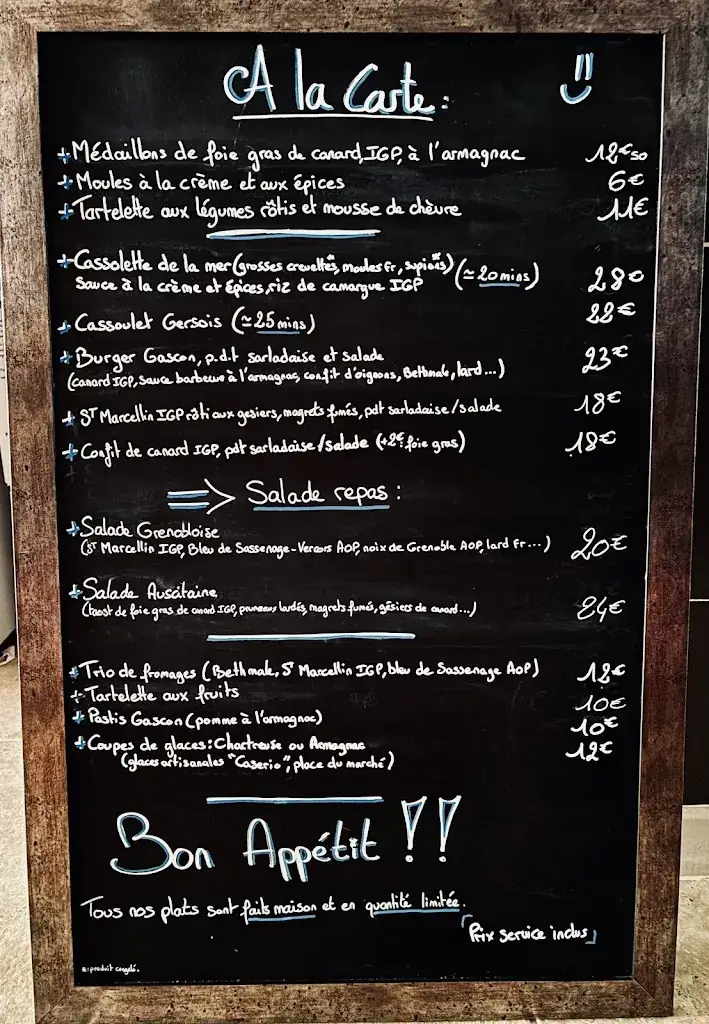 A la Carte :
+ Médaillons de foie gras de canard, IGP, à l'armagnac 12€50
+ Moules à la crème et aux épices 6€
+ Tartelette aux légumes rôtis et mousse de chèvre 11€
+ Cassolette de la mer (grosses crevettes*, moules fr, supions*) (≃ 20 mins) 28€
sauce à la crème et épices, riz de camargue IGP
+ Cassoulet Gersois (≃ 25 mins) 22€
+ Burger Gascon, p.d.t sarladaise et salade 23€
(canard IGP, sauce barbecue à l'armagnac, confit d'oignons, Bethmale, lard...)
+ ST Marcellin IGP rôti aux gesiers, magrets fumés, pdt sarladaise / salade 18€
+ Confit de canard IGP, pdt sarladaise / salade (+2€ foie gras) 18€
=> Salade repas :
+ Salade Grenobloise
(ST Marcellin IGP, Bleu de Sassenage-Vercors AOP, noix de Grenoble AOP, lard fr...) 20€
+ Salade Auscitaine
(toast de foie gras de canard IGP, pruneaux lardés, magrets fumés, gésiers de canard...) 24€
+ Trio de fromages (Bethmale, ST Marcellin IGP, bleu de Sassenage AOP) 12€
+ Tartelette aux fruits 10€
+ Pastis Gascon (pomme à l'armagnac) 10€
+ Coupes de glaces : Chartreuse ou Armagnac 12€
(glaces artisanales "Caserio", place du marché)
Bon Appétit !!
Tous nos plats sont faits maison et en quantité limitée.
Prix service inclus
* : produit congelé.